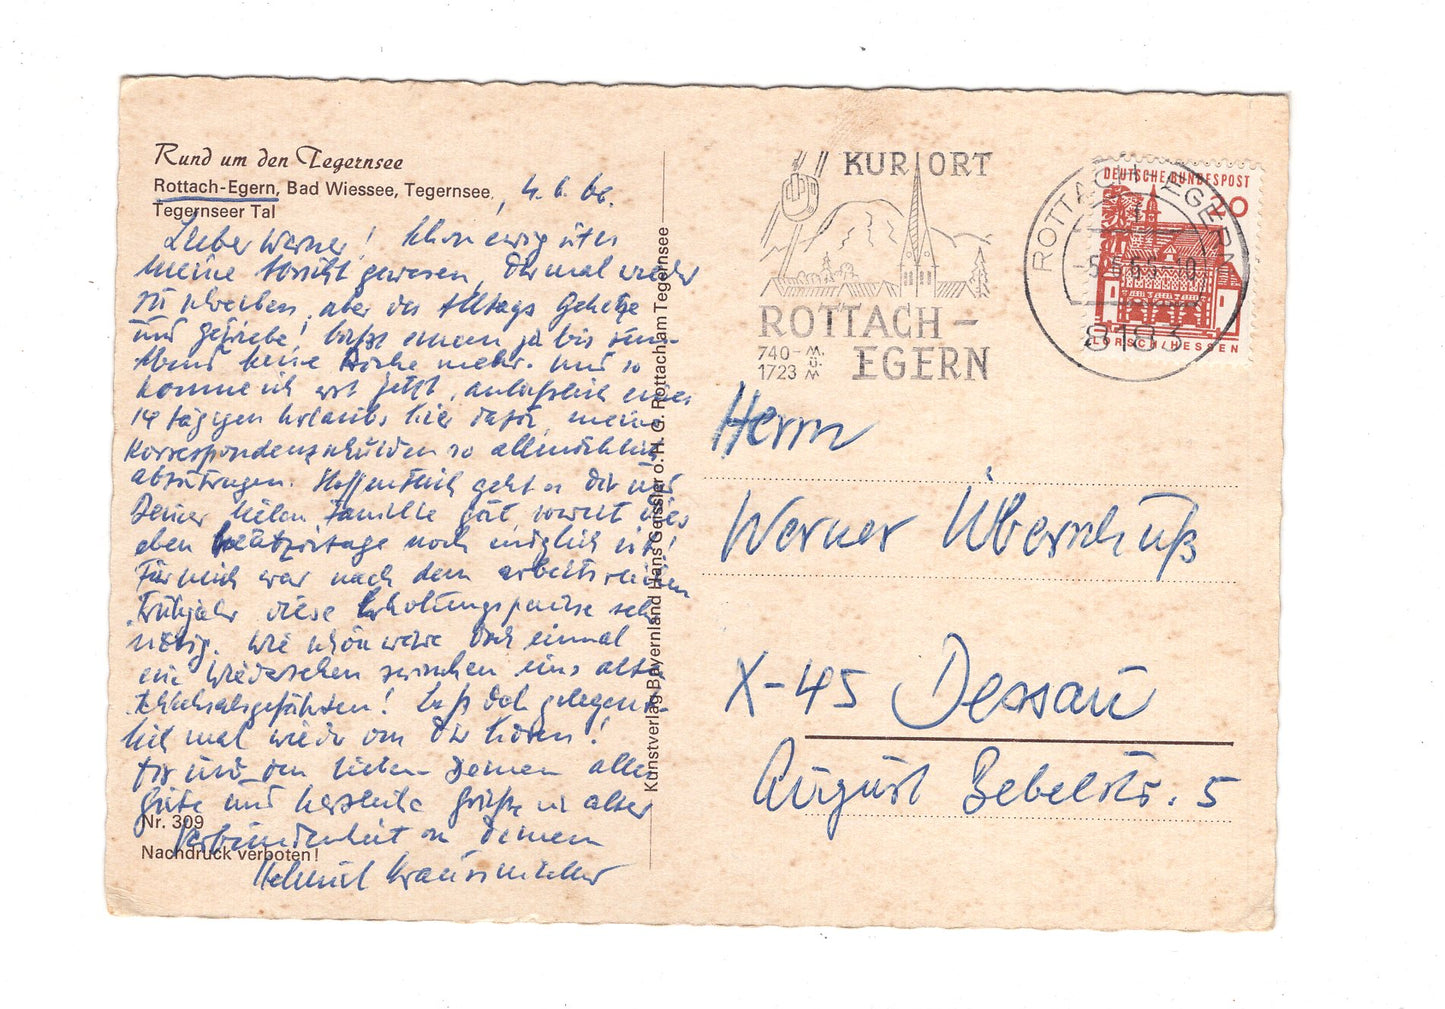 Rund um den Tegernsee
Rottach-Egern, Bad Wiessee, Tegernsee,
Tegernseer Tal
4. 6. 66.
Lieber Werner! Schon ewig ist es
meine Absicht gewesen, Dir mal wieder
zu schreiben, aber das Alltags Gehetze
und Getriebe! läßt einem ja bis zum
Abend keine Höhe mehr. Und so
komme ich erst jetzt, anläßlich eines
14 tägigen Urlaubs hier dazu, meine
Korrespondenzschulden so allmählich
abzutragen. Hoffentlich geht es Dir und
Deiner lieben Familie gut, soweit dies
eben heutzutage noch möglich ist!
Für mich war nach dem arbeitsreichen
Frühjahr diese Erholungspause sehr
nötig. Wie schön wäre doch einmal
ein Wiedersehen zwischen uns alten
Schicksalsgefährten! Laß doch gelegent-
lich mal wieder von Dir hören!
Dir und den lieben Deinen alles
Gute und herzliche Grüße in alter
Verbundenheit von Deinem
Helmut
Nr. 309
Nachdruck verboten!
Kunstverlag Bayernland Hans Geissler o. H. G. Rottach am Tegernsee
KURORT
ROTTACH-
EGERN
740- M.
Ü.
1723 M
ROTTACH-EGERN
1
8183
DEUTSCHE BUNDESPOST
20
LORSCH/HESSEN
Herrn
Werner Überschuß
X-45 Dessau
August Bebelstr. 5